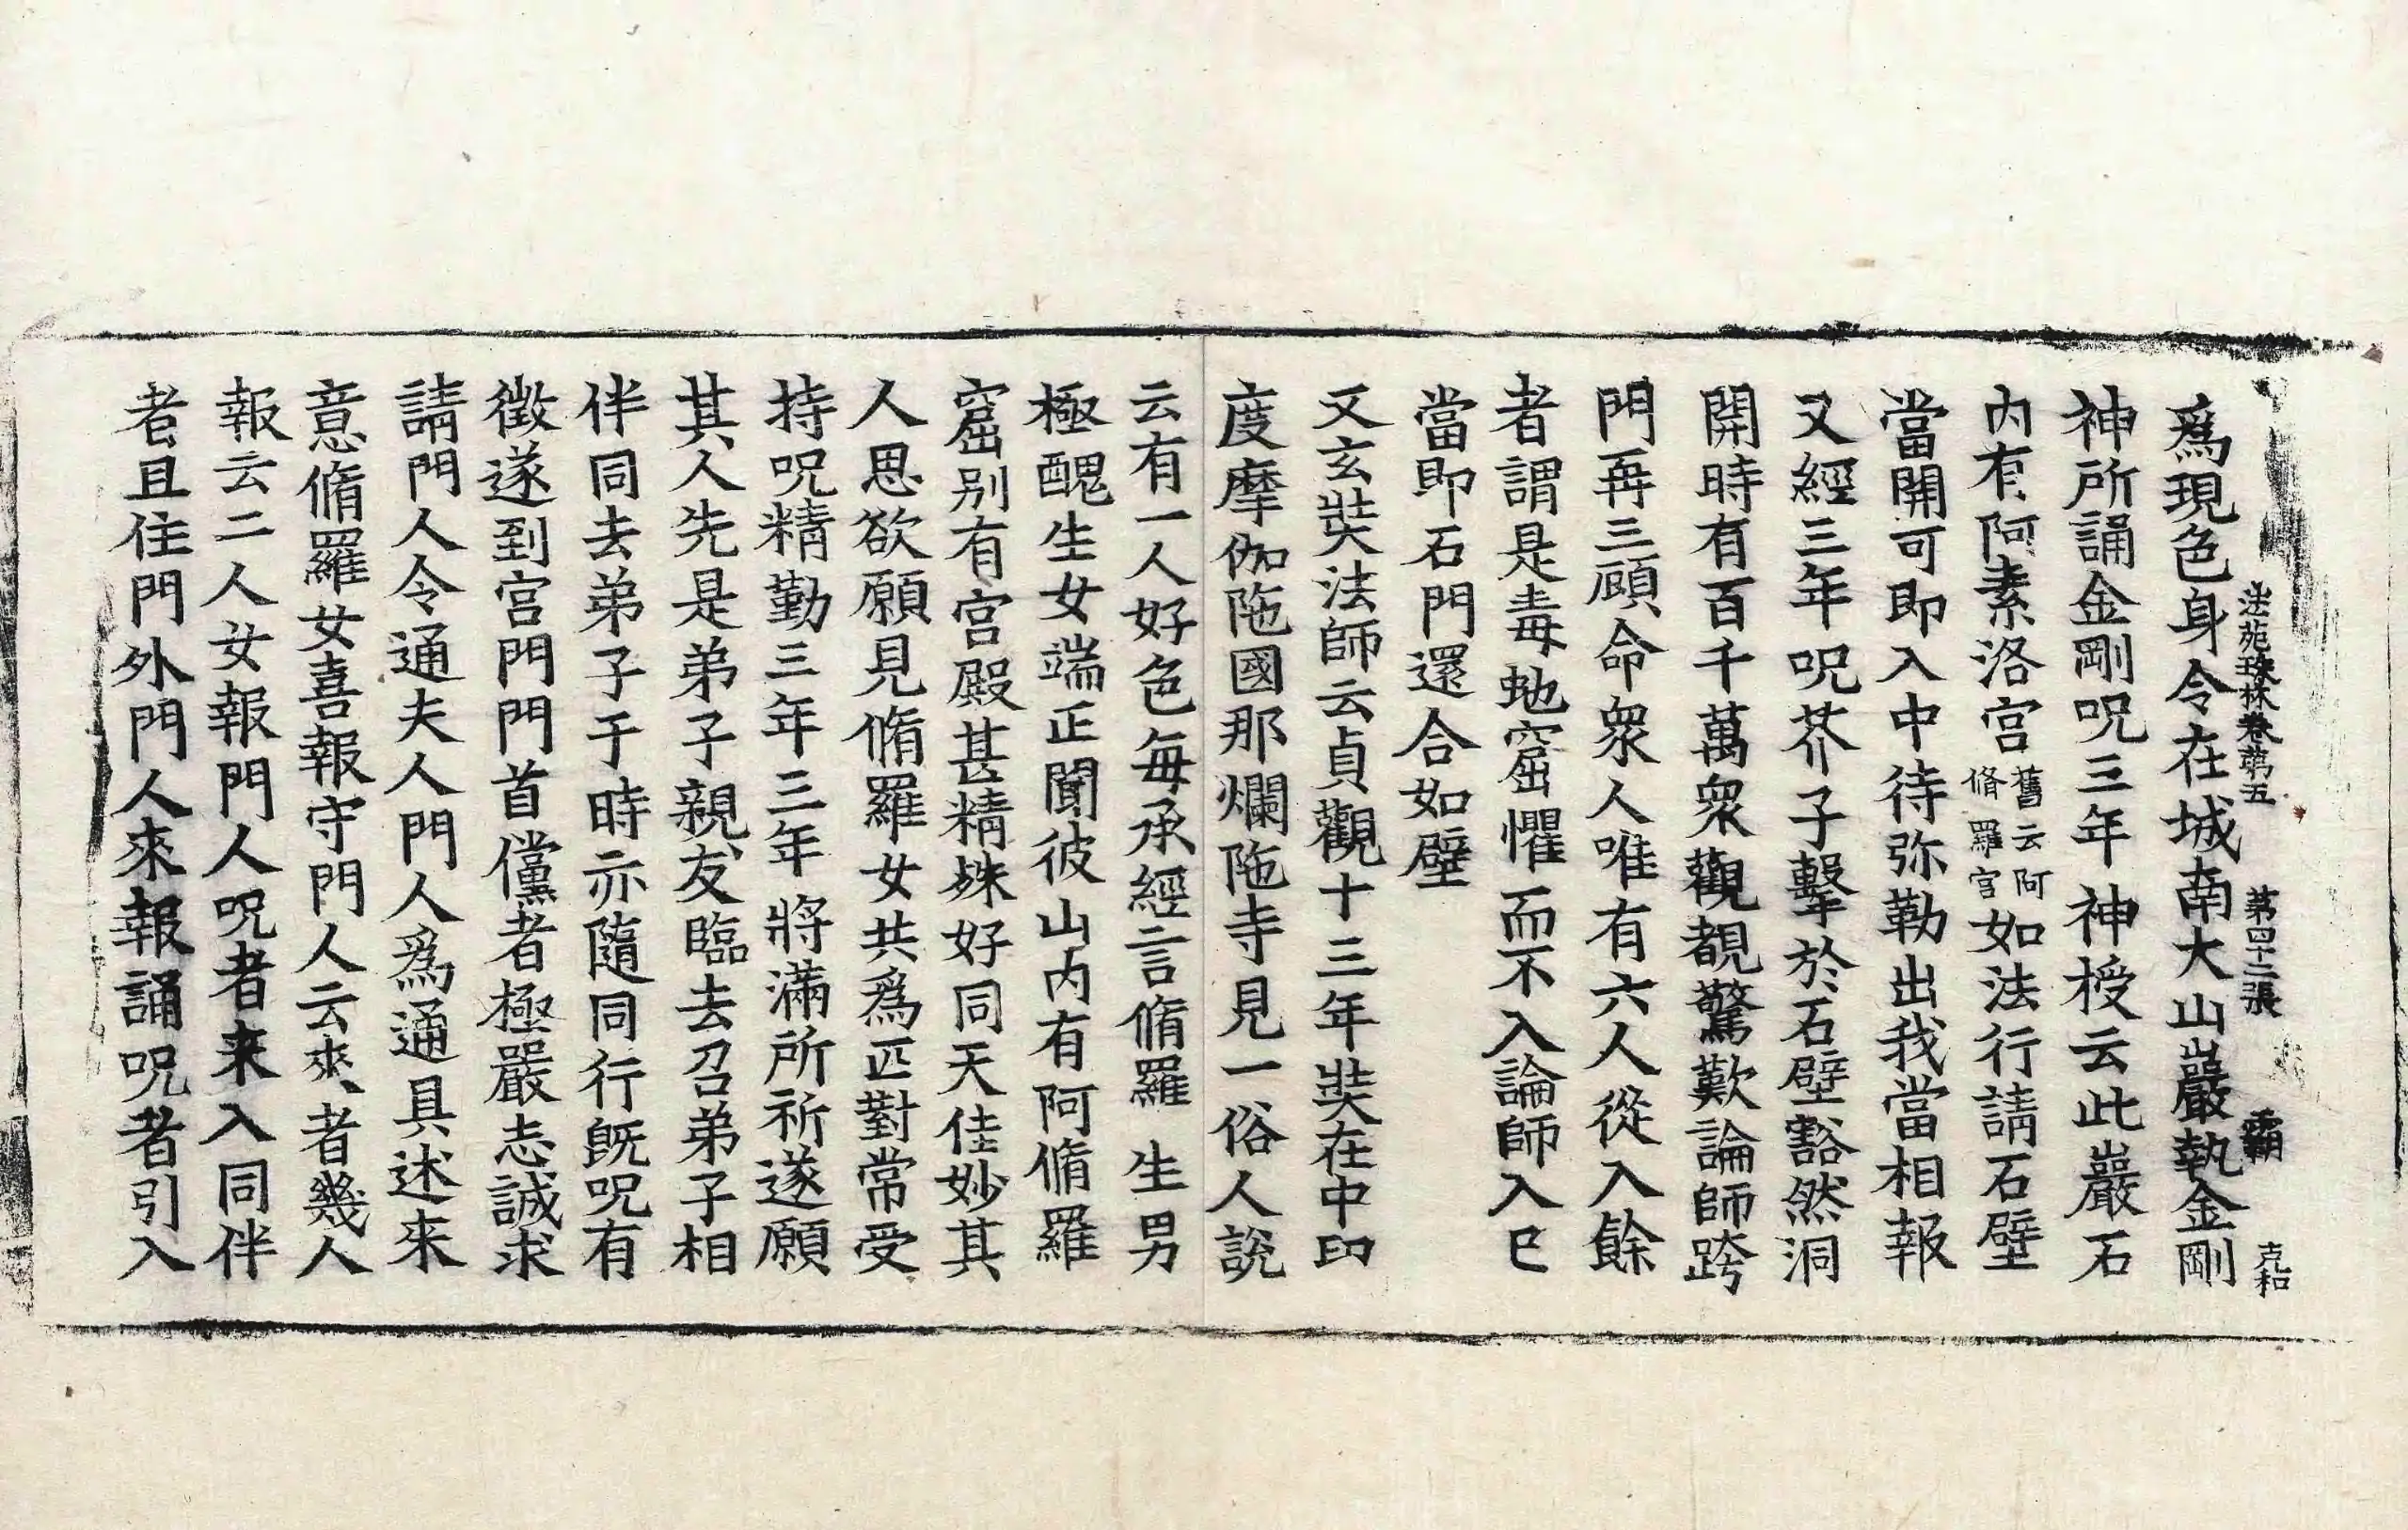 法苑珠林卷第五 第四十二張 覇 克和
爲現色身令在城南大山巖執金剛
神所誦金剛呪三年神授云此巖石
内有阿素洛宮舊云阿脩羅宮如法行請石壁
當開可即入中待弥勒出我當相報
又經三年呪芥子擊於石壁豁然洞
開時有百千萬衆觀覩驚歎論師跨
門再三顧命衆人唯有六人從入餘
者謂是毒虵窟懼而不入論師入已
當即石門還合如壁
又玄奘法師云貞觀十三年奘在中印
度摩伽陁國那爛陁寺見一俗人說
云有一人好色每承經言脩羅生男
極醜生女端正聞彼山内有阿脩羅
窟别有宮殿甚精姝好同天佳妙其
人思欲願見脩羅女共爲匹對常受
持呪精勤三年三年將滿所祈遂願
其人先是弟子親友臨去召弟子相
伴同去弟子于時亦隨同行旣呪有
徴遂到宮門門首儻者極嚴志誠求
請門人令通夫人門人爲通具述來
意脩羅女喜報守門人云來者幾人
報云二人女報門人呪者来入同伴
者且住門外門人來報誦呪者引入